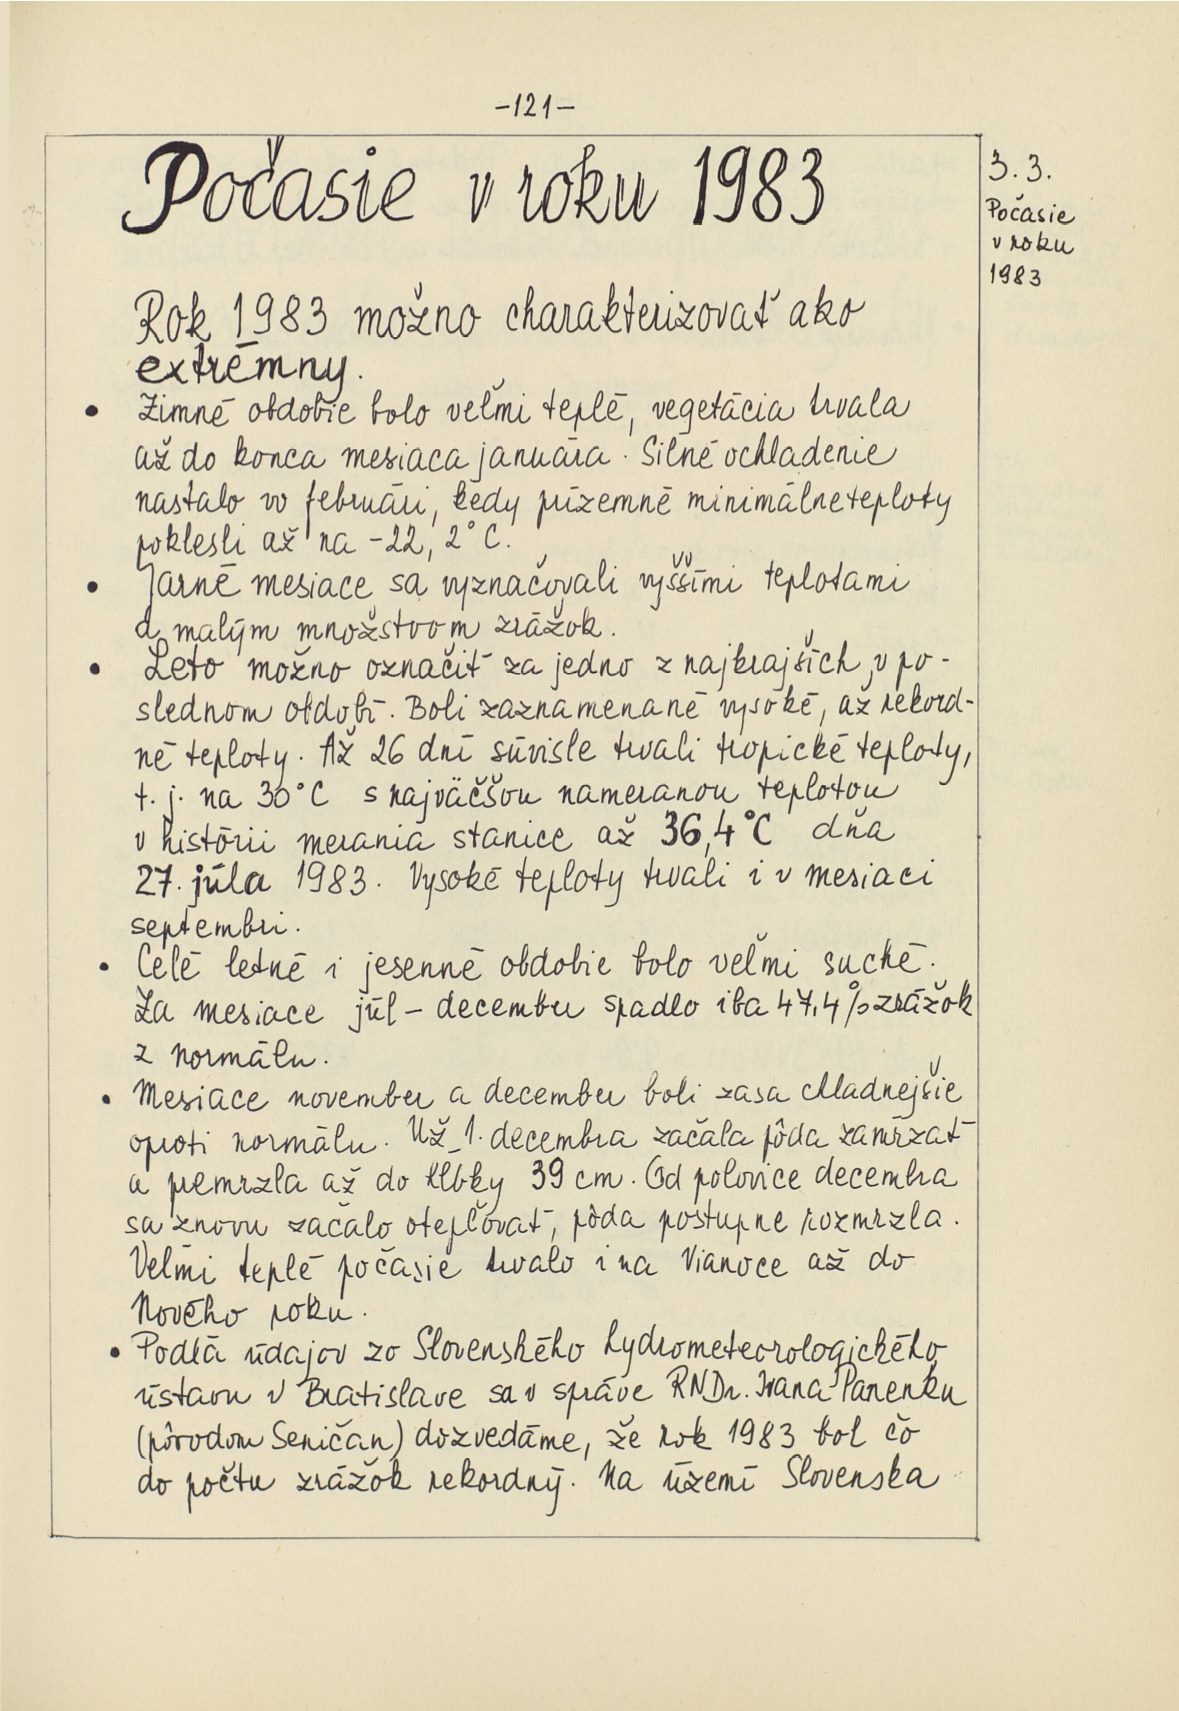 -121-
Počasie v roku 1983
3.3.
Počasie
v roku
1983
Rok 1983 možno charakterizovať ako
extrémny.
• Zimné obdobie bolo veľmi teplé, vegetácia trvala
až do konca mesiaca januára. Silné ochladenie
nastalo vo februári, kedy prízemné minimálne teploty
poklesli až na -22,2°C.
• Jarné mesiace sa vyznačovali vyššími teplotami
a malým množstvom zrážok.
• Leto možno označiť za jedno z najkrajších, v po-
slednom období. Boli zaznamenané vysoké, až rekord-
né teploty. Až 26 dní súvisle trvali tropické teploty,
t. j. na 30°C s najväčšou nameranou teplotou
v histórii merania stanice až 36,4°C dňa
27. júla 1983. Vysoké teploty trvali i v mesiaci
septembri.
• Celé letné i jesenné obdobie bolo veľmi suché.
Za mesiace júl - december spadlo iba 47,4% zrážok
z normálu.
• Mesiace november a december boli zasa chladnejšie
oproti normálu. Už 1. decembra začala pôda zamŕzať
a premrzla až do hĺbky 39 cm. Od polovice decembra
sa znovu začalo otepľovať, pôda postupne rozmrzla.
Veľmi teplé počasie trvalo i na Vianoce až do
Nového roku.
• Podľa údajov zo Slovenského hydrometeorologického
ústavu v Bratislave sa v správe RNDr. Ivana Panenku
(pôvodom Seničan) dozvedáme, že rok 1983 bol čo
do počtu zrážok rekordný. Na území Slovenska